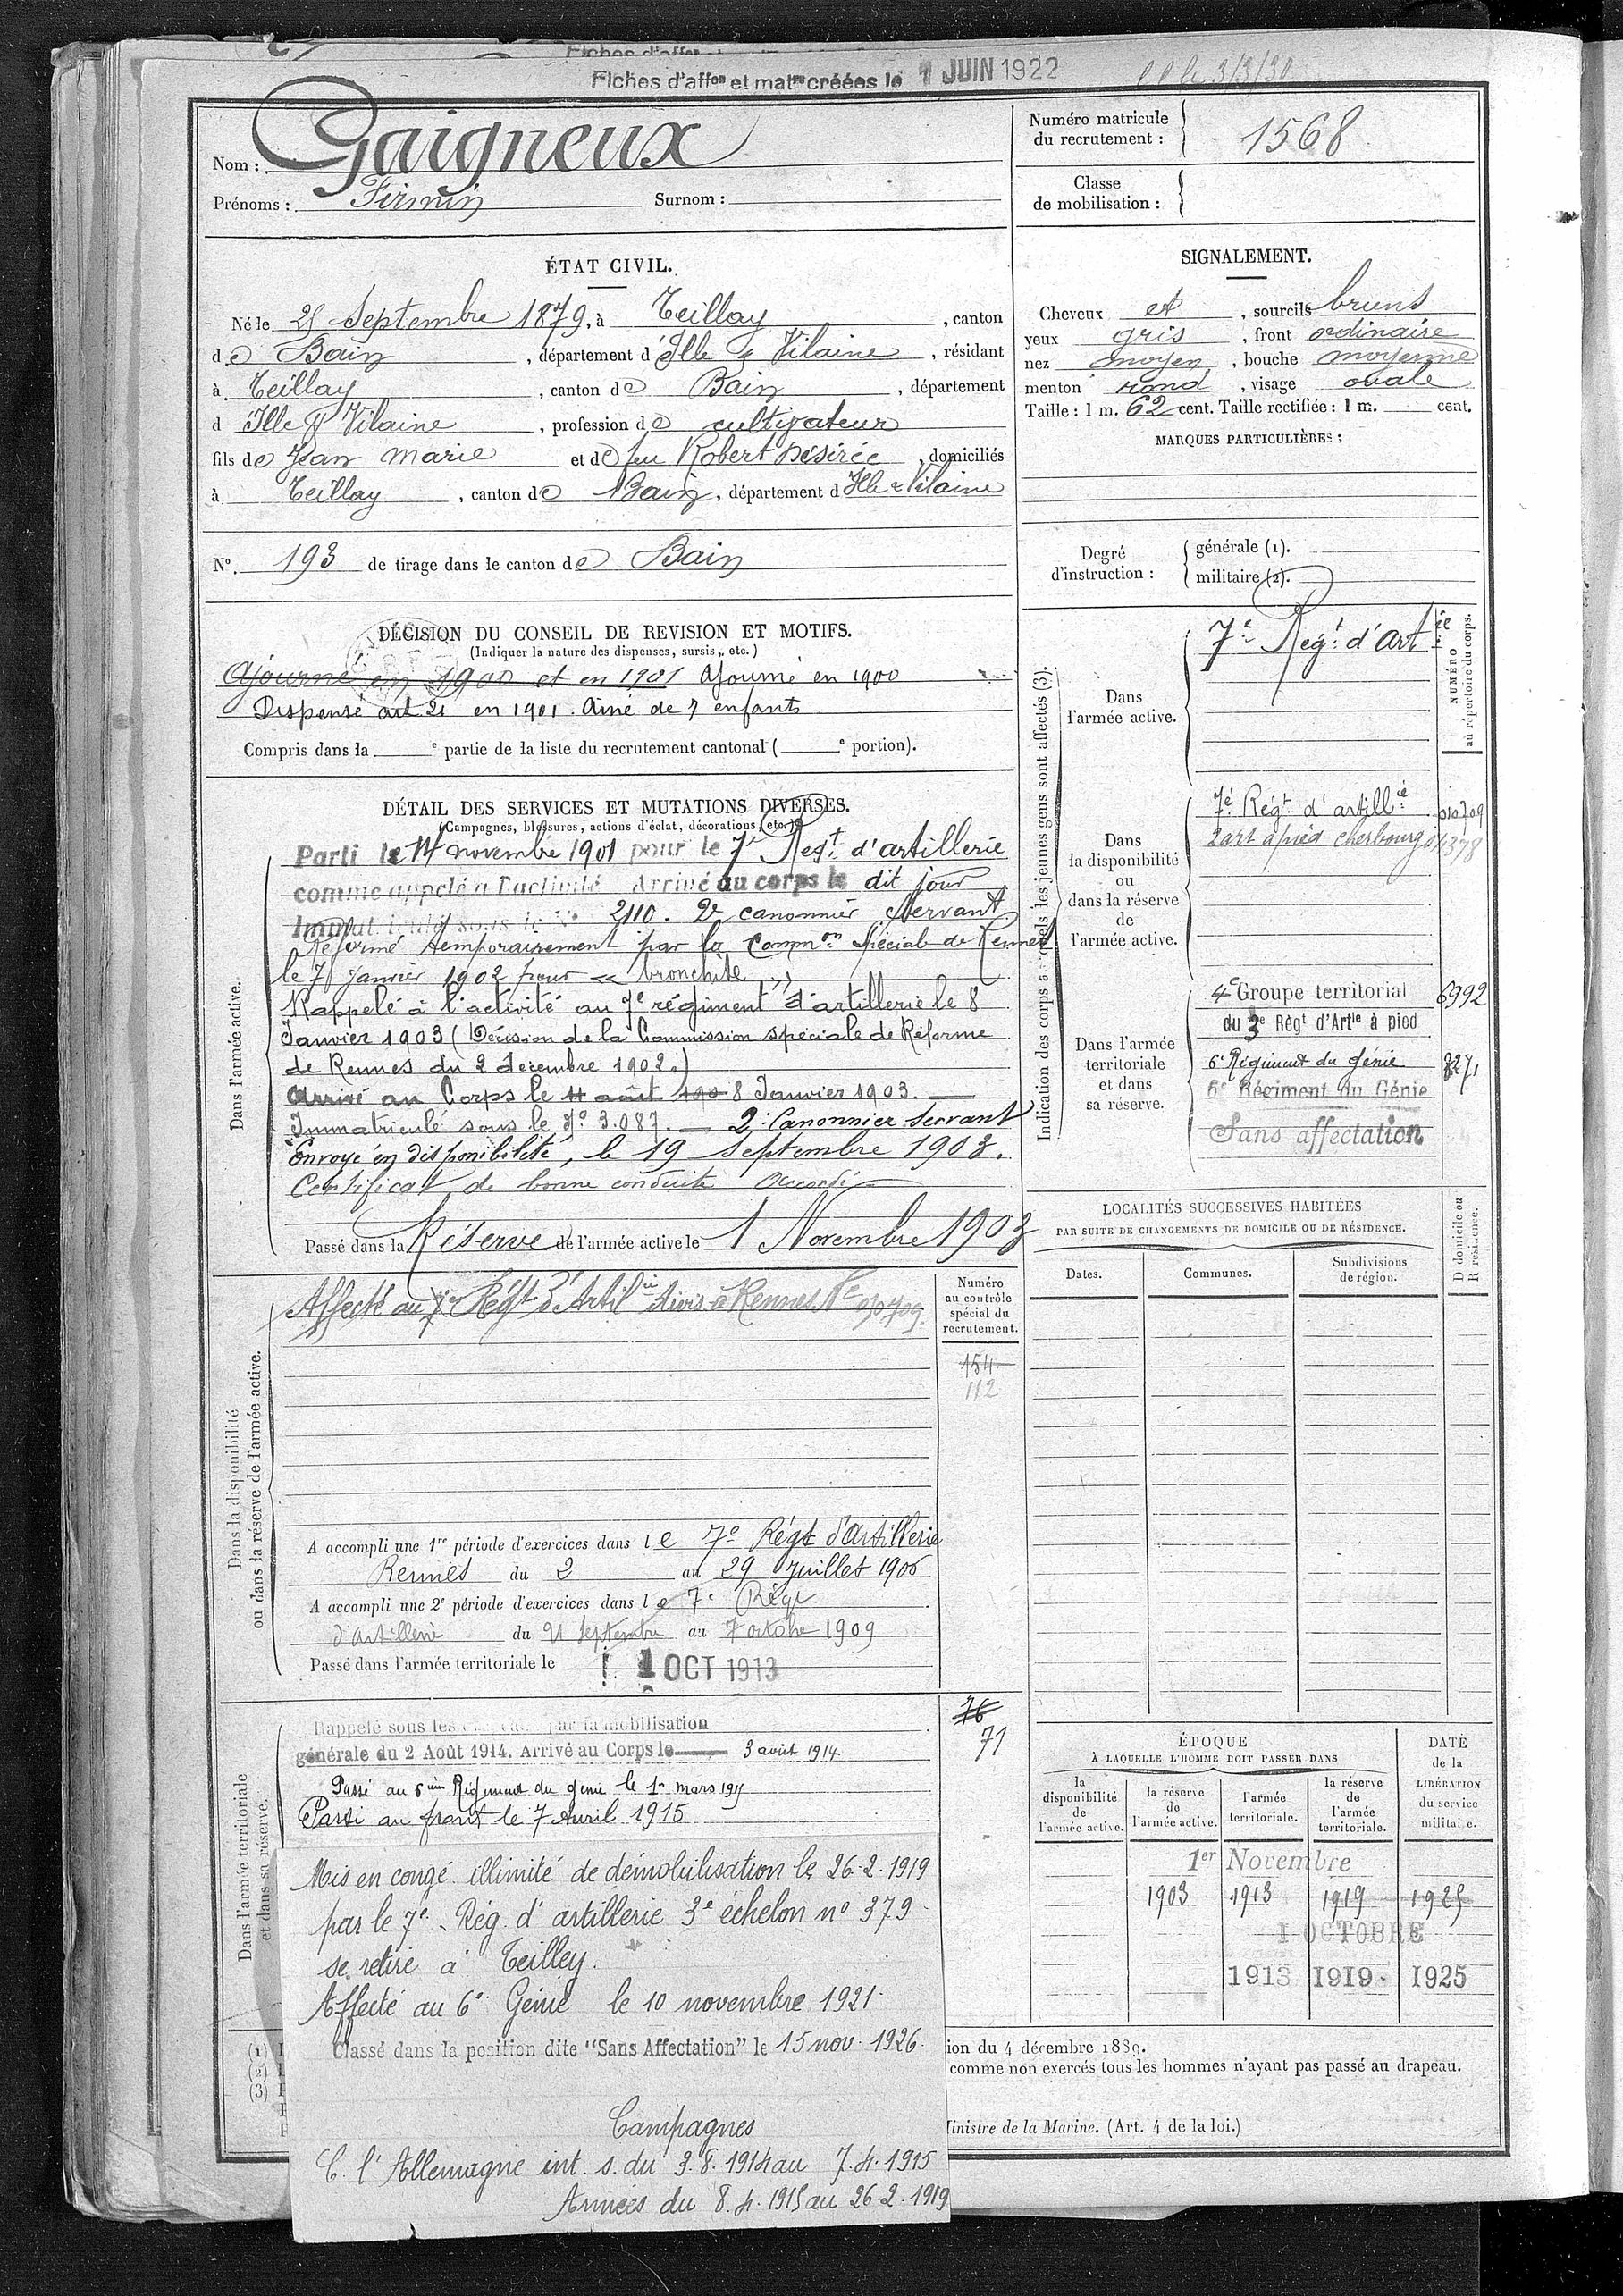 Fiches d'affon et matre créées le 1 JUIN 1922
Nom : Gaigneux
Prénoms : Firmin Surnom :
Numéro matricule du recrutement : 1568
Classe de mobilisation :
ÉTAT CIVIL.
Né le 25 Septembre 1879, à Teillay, canton
de Bain, département d'Ille & Vilaine, résidant
à Teillay, canton de Bain, département
d Ille & Vilaine, profession de cultivateur
fils de Jean Marie et de feu Robert Désirée, domiciliés
à Teillay, canton de Bain, département d Ille & Vilaine
N° 193 de tirage dans le canton de Bain
SIGNALEMENT.
Cheveux et, sourcils bruns
yeux gris, front ordinaire
nez moyen, bouche moyenne
menton rond, visage ovale
Taille : 1 m. 62 cent. Taille rectifiée : 1 m. cent.
MARQUES PARTICULIÈRES :
Degré d'instruction :
générale (1).
militaire (2).
DÉCISION DU CONSEIL DE REVISION ET MOTIFS.
(Indiquer la nature des dispenses, sursis, etc.)
Ajourné en 1900 et en 1901 Ajourné en 1900
Dispensé art 21 en 1901. Ainé de 7 enfants
Compris dans la e partie de la liste du recrutement cantonal ( e portion).
DÉTAIL DES SERVICES ET MUTATIONS DIVERSES.
(Campagnes, blessures, actions d'éclat, décorations, etc.)
Dans l'armée active.
Parti le 14 novembre 1901 pour le 7e Regt d'artillerie
comme appelé à l'activité Arrivé au corps le dit jour
2110. 2e canonnier servant
Réformé temporairement par la Common Spéciale de Rennes
le 7 Janvier 1902 pour « bronchite »
Rappelé à l'activité au 7e régiment d'artillerie le 8
Janvier 1903 (Décision de la Commission spéciale de Réforme
de Rennes du 2 décembre 1902.)
Arrivé au Corps le 11 août 190 8 Janvier 1903.
Immatriculé sous le No 3.087. — 2e Canonnier Servant
Envoyé en disponibilité, le 19 Septembre 1903.
Certificat de bonne conduite Accordé
Passé dans la Réserve de l'armée active le 1 Novembre 1903
Indication des corps auxquels les jeunes gens sont affectés (3).
NUMÉRO au répertoire du corps.
Dans l'armée active.
7e Regt d'Artie
Dans la disponibilité ou dans la réserve de l'armée active.
7e Régt d'artillie 010709
2 art à pied cherbourg 4378
Dans l'armée territoriale et dans sa réserve.
4e Groupe territorial 6992
du 3e Régt d'Artie à pied
6e Régiment du génie 8271
6e Régiment du Génie
Sans affectation
LOCALITÉS SUCCESSIVES HABITÉES
PAR SUITE DE CHANGEMENTS DE DOMICILE OU DE RÉSIDENCE.
D domicile ou R résidence.
Dates. Communes. Subdivisions de région.
Dans la disponibilité ou dans la réserve de l'armée active.
Affecté au 7e Régt d'Artilie à Rennes No 010709
Numéro au contrôle spécial du recrutement.
154
112
A accompli une 1re période d'exercices dans le 7e Régt d'Artillerie
Rennes du 2 au 29 Juillet 1906
A accompli une 2e période d'exercices dans le 7e Régt
d'artillerie du 21 septembre au 7 octobre 1909
Passé dans l'armée territoriale le 1 OCT 1913
76
71
Dans l'armée territoriale et dans sa réserve.
Rappelé sous les par la mobilisation
générale du 2 Août 1914. Arrivé au Corps le 3 août 1914
Passé au 6ème Régiment du génie le 1er mars 1915
Parti au front le 7 Avril 1915
Mis en congé illimité de démobilisation le 26-2-1919
par le 7e Rég. d'artillerie 3e échelon no 379
se retire à Teilley.
Affecté au 6e Génie le 10 novembre 1921
Classé dans la position dite "Sans Affectation" le 15 nov. 1926.
Campagnes
C. l'Allemagne int. s. du 3.8.1914 au 7.4.1915
Armées du 8.4.1915 au 26-2-1919
ÉPOQUE
À LAQUELLE L'HOMME DOIT PASSER DANS
la disponibilité de l'armée active.
la réserve de l'armée active.
l'armée territoriale.
la réserve de l'armée territoriale.
DATE de la LIBÉRATION du service militaire.
1er Novembre
1903 1913 1919 1925
1 OCTOBRE
1913 1919 1925
(1)
(2)
(3)
ion du 4 décembre 1889.
comme non exercés tous les hommes n'ayant pas passé au drapeau.
inistre de la Marine. (Art. 4 de la loi.)